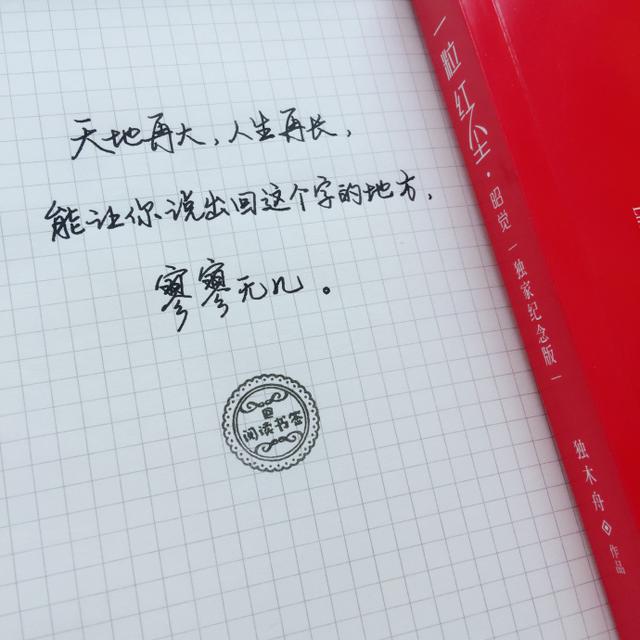 天地再大，人生再长，
能让你说出回这个字的地方，
寥寥无几。
阅读书签
一粒红尘·昭觉｜独家纪念版｜
独木舟 作品